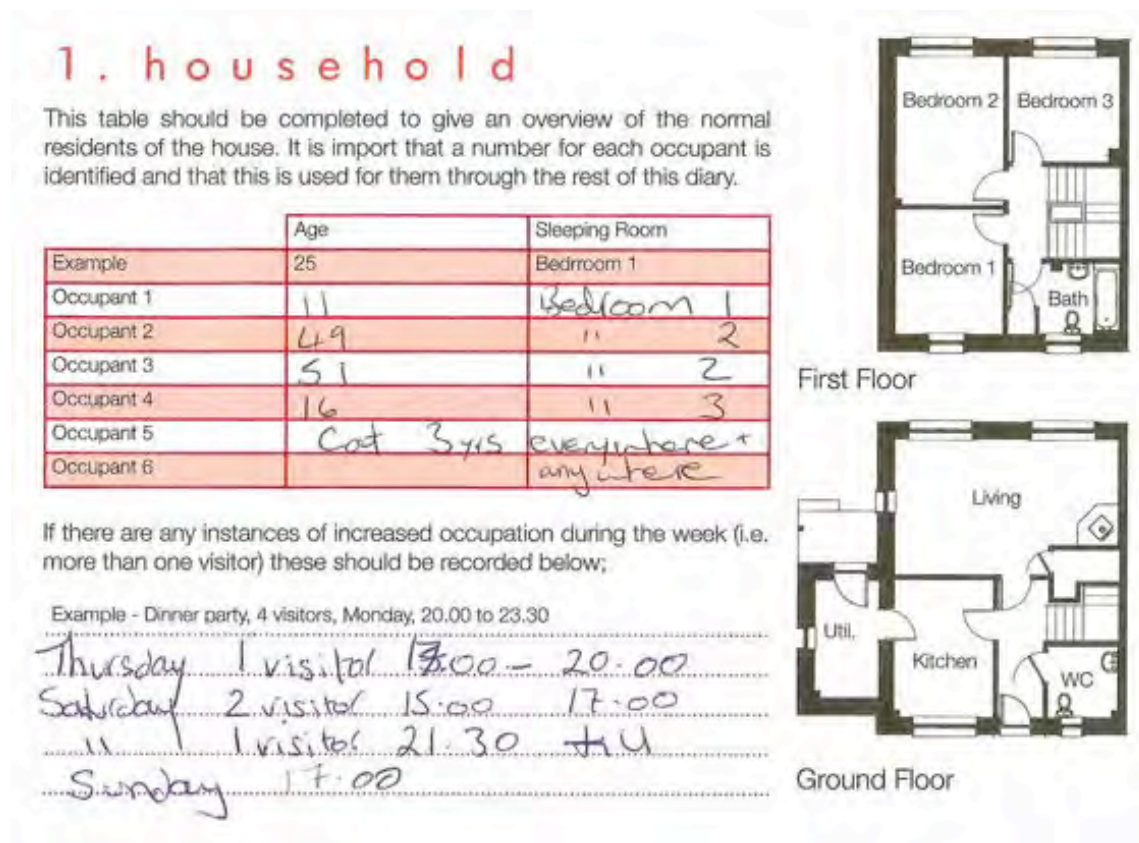 1. household
This table should be completed to give an overview of the normal
residents of the house. It is import that a number for each occupant is
identified and that this is used for them through the rest of this diary.
Age Sleeping Room
Example 25 Bedrroom 1
Occupant 1 11 Bedroom 1
Occupant 2 49 " 2
Occupant 3 51 " 2
Occupant 4 16 " 3
Occupant 5 Cat 3 yrs everywhere +
Occupant 6 anywhere
If there are any instances of increased occupation during the week (i.e.
more than one visitor) these should be recorded below;
Example - Dinner party, 4 visitors, Monday, 20.00 to 23.30
Thursday 1 visitor 18:00 - 20.00
Saturday 2 visitor 15.00 17.00
" 1 visitor 21.30
Sunday 17.00
Bedroom 2 Bedroom 3
Bedroom 1
Bath
First Floor
Living
Util.
Kitchen
WC
Ground Floor